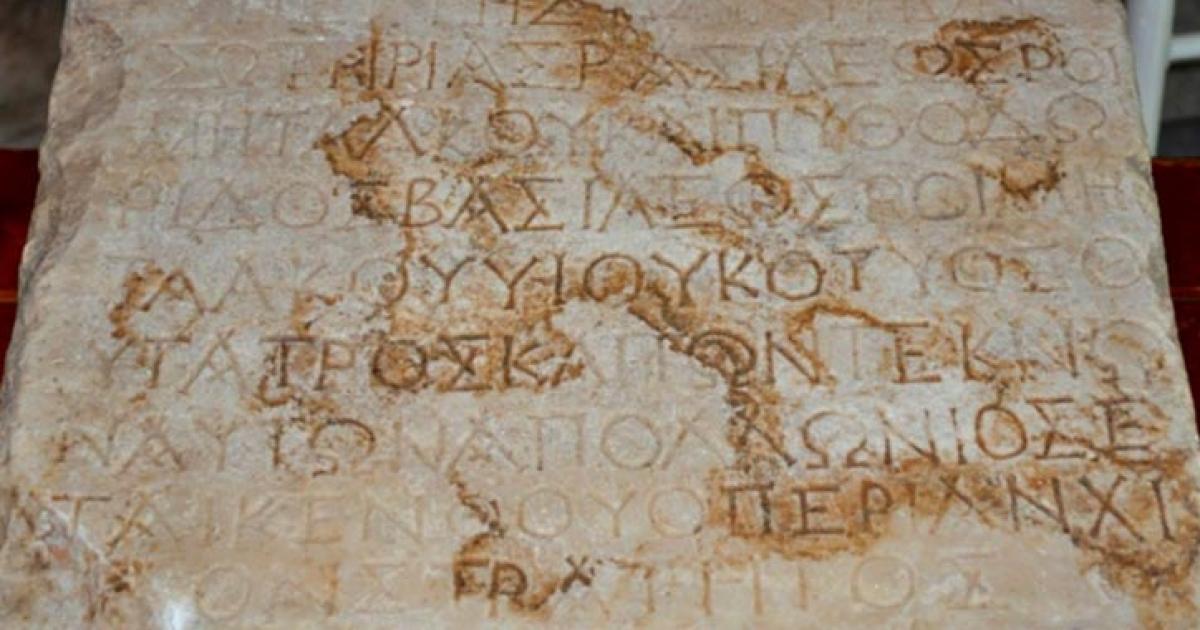 ΣΩΤΗΡΙΑΣΒΑΣΙΛΕΩΣΡΟΙ
ΜΗΤΑΛΚΟΥΚΑΙΠΥΘΟΔΩ
ΡΙΔΟΣΒΑΣΙΛΕΩΣΡΟΙΜΗ
ΤΑΛΚΟΥΥΙΟΥΚΟΤΥΟΣΘ
ΥΓΑΤΡΟΣΚΑΙΤΩΝΤΕΚΝΩ
ΝΑΥΤΩΝΑΠΟΛΛΩΝΙΟΣΕ
ΤΑΙΚΕΝΘΟΥΟΠΕΡΙΑΝΧΙ
ΑΛΟΝΣΤΡΑΤΗΓΟΣ